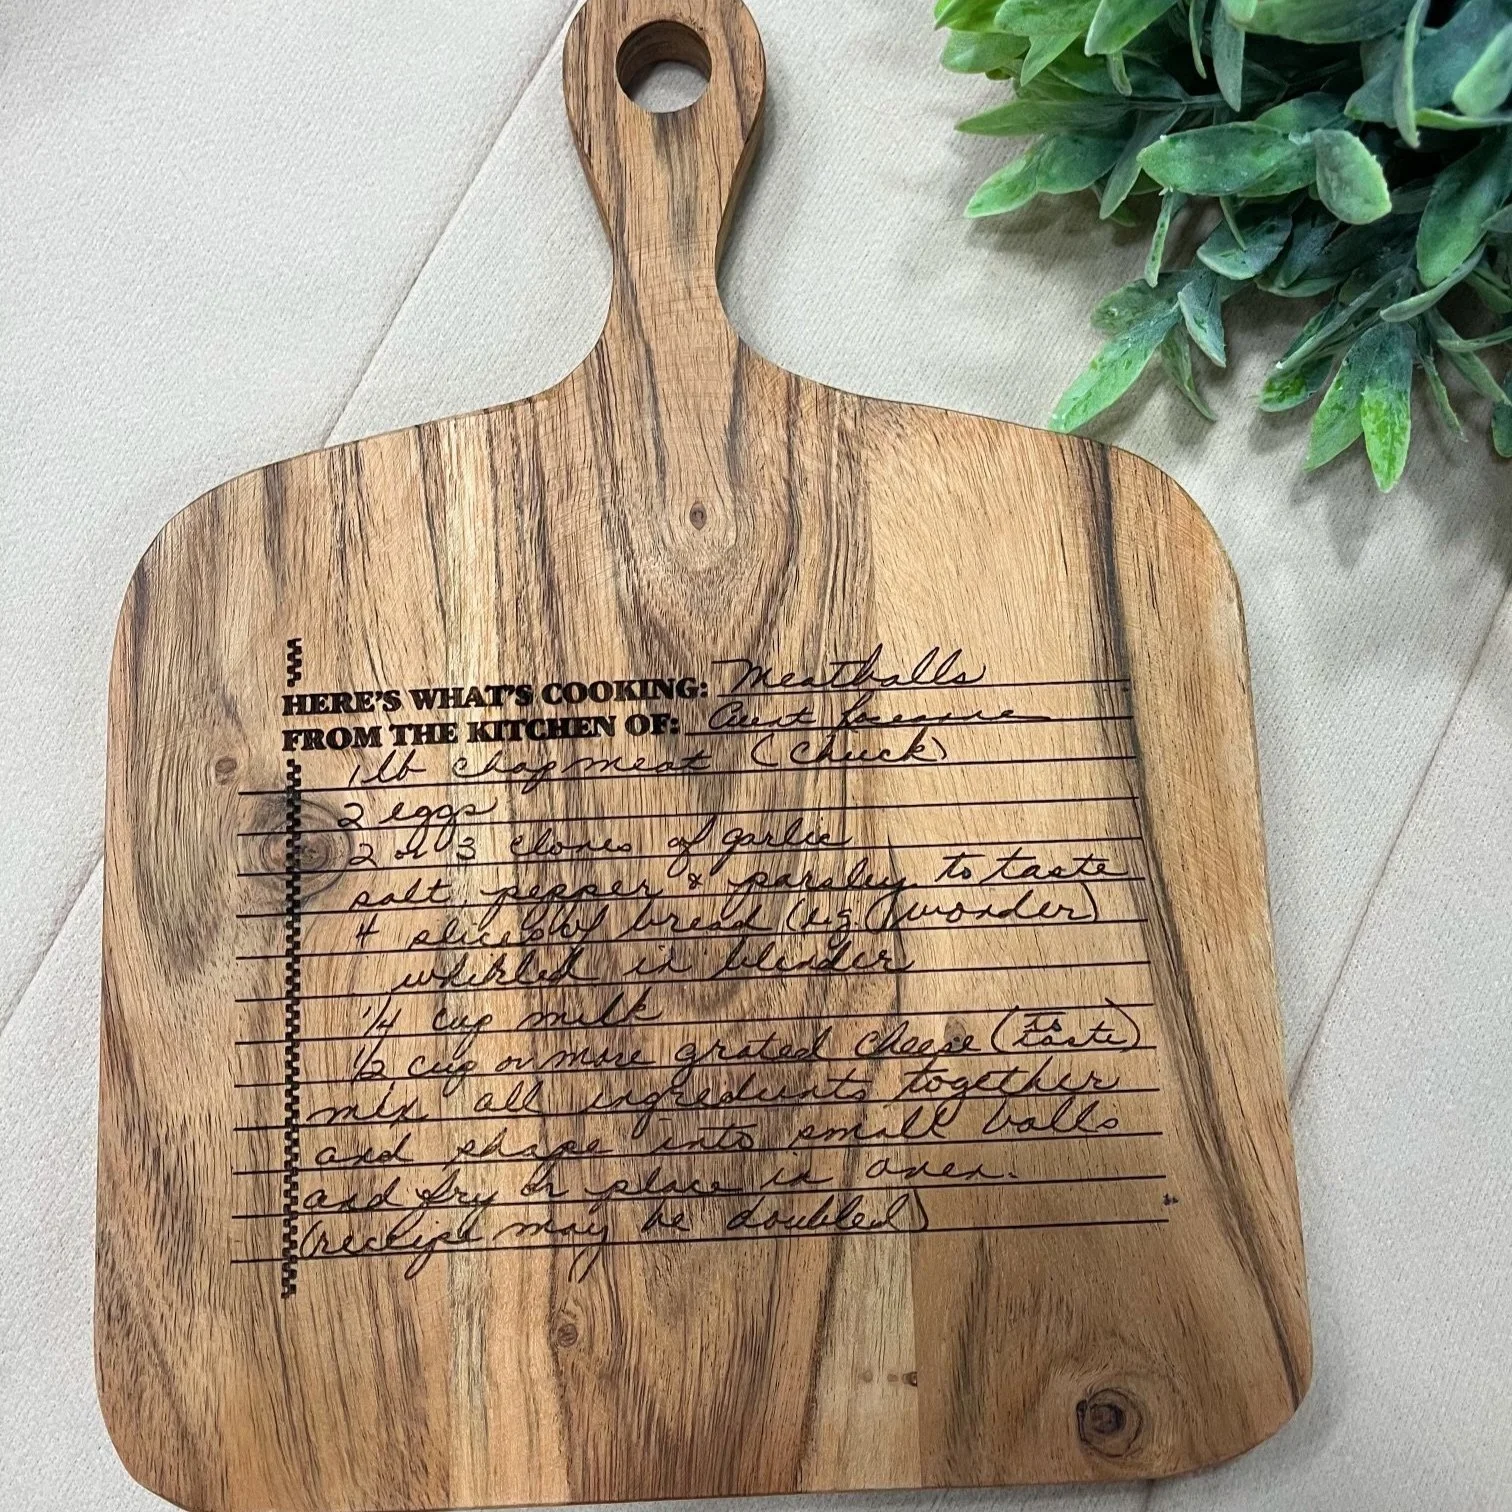 HERE'S WHAT'S COOKING: Meatballs
FROM THE KITCHEN OF: Aunt
1 lb chopmeat (Chuck)
2 eggs
2 or 3 cloves of garlic
salt, pepper & parsley to taste
4 slices of bread (e.g. Wonder)
whirled in blender
1/4 cup milk
1/2 cup or more grated cheese (to taste)
mix all ingredients together
and shape into small balls
and fry or place in oven.
(recipe may be doubled)